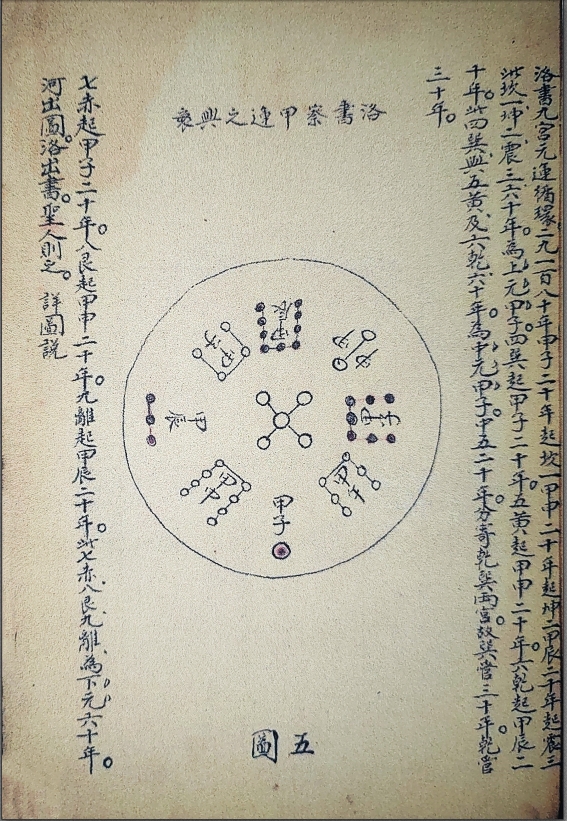 洛書九宮元運循環二九一百八十年甲子二十年起坎一甲申二十年起坤二甲辰二十年起震三
此坎一坤二震三六十年。為上元甲子。四巽起甲子二十年。五黃起甲申二十年。六乾起甲辰二
十年。此四巽與五黃及六乾六十年。為中元甲子。中五二十年。分寄乾巽兩宮。故巽管三十年。乾管
三十年。
洛書察甲運之興衰
甲辰
甲子
甲子
甲辰
甲申
甲子
五圖
七赤起甲子二十年。八艮起甲申二十年。九離起甲辰二十年。此七赤八艮九離為下元六十年。
河出圖。洛出書。聖人則之。詳圖說